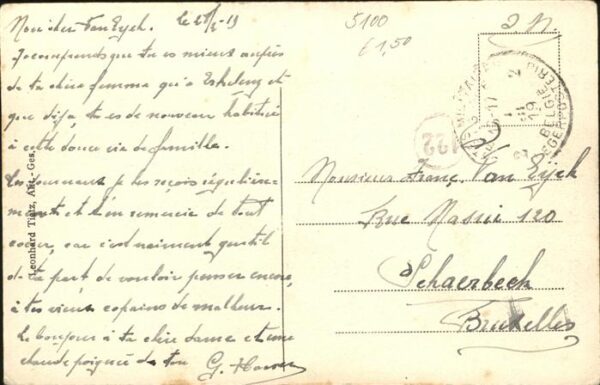 Mon cher Van Eyck. le 28/2-19
Je comprends que tu es mieux auprès
de ta chère femme qu'à et
que déja tu es de nouveau habitué
à cette douce vie de famille.
Les journaux je les reçois régulière-
ment et t'en remercie de tout
coeur, car c'est vraiment gentil
de ta part de vouloir penser encore,
à tes vieux copains de malheur.
Le bonjour à ta chère dame et une
chaude poignée de ton G.
Leonhard Tietz, Akt.-Ges.
5100
61,50
S.M.
122
BELGIE
LEGERPOSTERIJ
Monsieur Franç. Van Eyck
Rue Massui 120
Schaerbeek
Bruxelles